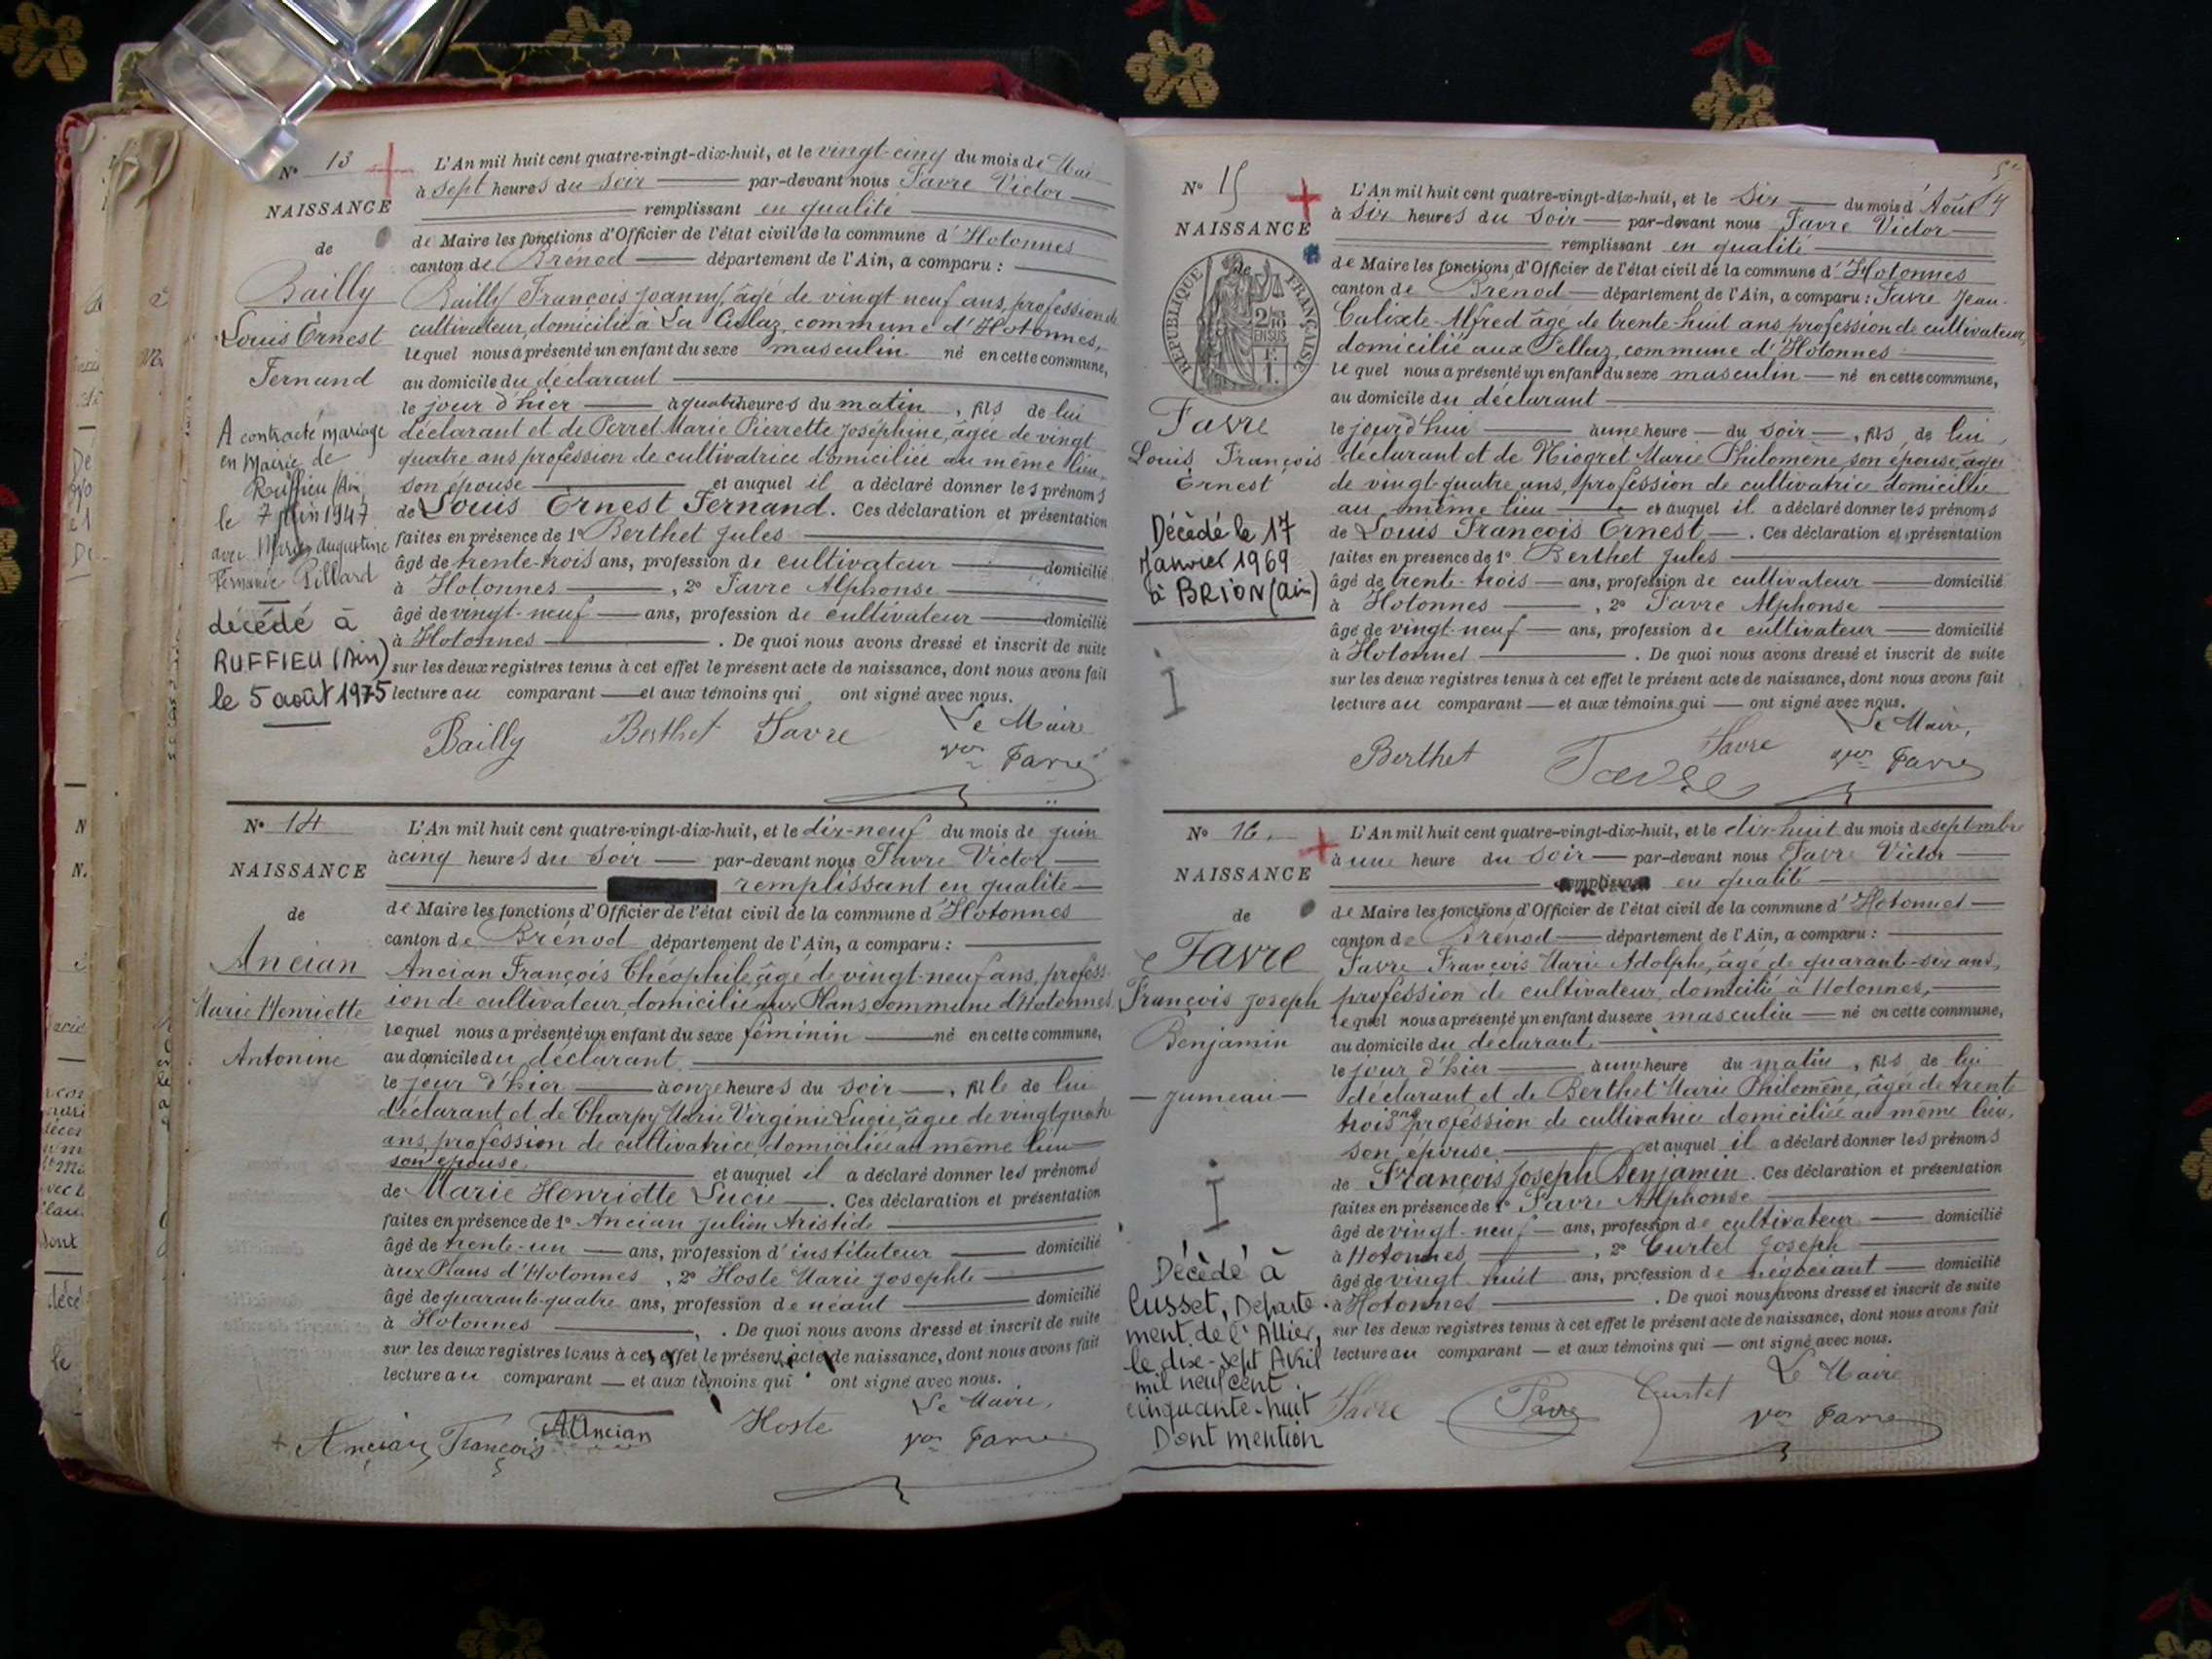 N° 13
NAISSANCE
de
Bailly
Louis Ernest
Fernand
A contracté mariage
en Mairie de
Ruffieu (Ain)
le 7 juin 1947
avec Marie Augustine
Fernande Pillard
décédé à
RUFFIEU (Ain)
le 5 août 1975
L'An mil huit cent quatre-vingt-dix-huit, et le vingt-cinq du mois de Mai
à sept heures du soir — par-devant nous Favre Victor
remplissant en qualité
de Maire les fonctions d'Officier de l'état civil de la commune d'Hotonnes
canton de Brénod — département de l'Ain, a comparu :
Bailly François Joanny, âgé de vingt neuf ans, profession de
cultivateur, domicilié à La commune d'Hotonnes,
lequel nous a présenté un enfant du sexe masculin né en cette commune,
au domicile du déclarant
le jour d'hier — à quatre heures du matin, fils de lui
déclarant et de Perret Marie Pierrette Joséphine, âgée de vingt
quatre ans profession de cultivatrice domiciliée au même lieu,
son épouse — et auquel il a déclaré donner les prénoms
de Louis Ernest Fernand. Ces déclaration et présentation
faites en présence de 1° Berthet Jules
âgé de trente-trois ans, profession de cultivateur — domicilié
à Hotonnes —, 2° Favre Alphonse
âgé de vingt-neuf — ans, profession de cultivateur — domicilié
à Hotonnes — . De quoi nous avons dressé et inscrit de suite
sur les deux registres tenus à cet effet le présent acte de naissance, dont nous avons fait
lecture au comparant — et aux témoins qui ont signé avec nous.
Bailly Berthet Favre Le Maire
Vor Favre
N° 14
NAISSANCE
de
Ancian
Marie Henriette
Antonine
L'An mil huit cent quatre-vingt-dix-huit, et le dix-neuf du mois de juin
à cinq heures du soir — par-devant nous Favre Victor —
remplissant en qualité —
de Maire les fonctions d'Officier de l'état civil de la commune d'Hotonnes
canton de Brénod département de l'Ain, a comparu :
Ancian François Théophile, âgé de vingt-neuf ans, profess-
ion de cultivateur, domicilié aux Plans commune d'Hotonnes
lequel nous a présenté un enfant du sexe féminin — né en cette commune,
au domicile du déclarant
le jour d'hier — à onze heures du soir —, fille de lui
déclarant et de Charpy Marie Virginie Lucie, âgée de vingt quatre
ans, profession de cultivatrice, domiciliée au même lieu
son épouse — et auquel il a déclaré donner les prénoms
de Marie Henriette Lucie —. Ces déclaration et présentation
faites en présence de 1° Ancian Julien Aristide
âgé de trente-un — ans, profession d'instituteur — domicilié
aux Plans d'Hotonnes, 2° Hoste Marie Josephte
âgé de quarante-quatre ans, profession de néant — domicilié
à Hotonnes —, . De quoi nous avons dressé et inscrit de suite
sur les deux registres tenus à cet effet le présent acte de naissance, dont nous avons fait
lecture au comparant — et aux témoins qui ont signé avec nous.
Le Maire,
Ancian François A Ancian Hoste Vor Favre
N° 15
NAISSANCE
de
RÉPUBLIQUE FRANÇAISE
2/10 EN SUS
Favre
Louis François
Ernest
Décédé le 17
Janvier 1969
à BRION (Ain)
L'An mil huit cent quatre-vingt-dix-huit, et le six — du mois d'Août
à six heures du soir — par-devant nous Favre Victor —
remplissant en qualité
de Maire les fonctions d'Officier de l'état civil de la commune d'Hotonnes
canton de Brénod — département de l'Ain, a comparu : Favre Jean-
Calixte Alfred âgé de trente-huit ans, profession de cultivateur,
domicilié aux Pellaz, commune d'Hotonnes
lequel nous a présenté un enfant du sexe masculin — né en cette commune,
au domicile du déclarant
le jourd'hui — à une heure — du soir —, fils de lui
déclarant et de Niogret Marie Philomène, son épouse, âgée
de vingt-quatre ans, profession de cultivatrice domiciliée
au même lieu — et auquel il a déclaré donner les prénoms
de Louis François Ernest —. Ces déclaration et présentation
faites en présence de 1° Berthet Jules
âgé de trente-trois — ans, profession de cultivateur — domicilié
à Hotonnes —, 2° Favre Alphonse
âgé de vingt-neuf — ans, profession de cultivateur — domicilié
à Hotonnes — . De quoi nous avons dressé et inscrit de suite
sur les deux registres tenus à cet effet le présent acte de naissance, dont nous avons fait
lecture au comparant — et aux témoins qui — ont signé avec nous.
Le Maire,
Berthet Favre Favre Vor Favre
N° 16
NAISSANCE
de
Favre
François Joseph
Benjamin
— jumeau —
Décédé à
Cusset, Départe-
ment de l'Allier,
le dix-sept Avril
mil neuf cent
cinquante-huit
Dont mention
L'An mil huit cent quatre-vingt-dix-huit, et le dix-huit du mois de septembre
à une heure du soir — par-devant nous Favre Victor —
remplissant en qualité
de Maire les fonctions d'Officier de l'état civil de la commune d'Hotonnes —
canton de Brénod — département de l'Ain, a comparu :
Favre François Marie Adolphe, âgé de quarante-six ans,
profession de cultivateur, domicilié à Hotonnes, —
lequel nous a présenté un enfant du sexe masculin — né en cette commune,
au domicile du déclarant
le jour d'hier — à une heure du matin, fils de lui
déclarant et de Berthet Marie Philomène, âgée de trente
trois ans profession de cultivatrice domiciliée au même lieu,
son épouse — et auquel il a déclaré donner les prénoms
de François Joseph Benjamin. Ces déclaration et présentation
faites en présence de 1° Favre Alphonse
âgé de vingt-neuf — ans, profession de cultivateur — domicilié
à Hotonnes —, 2° Curtet Joseph
âgé de vingt huit ans, profession de négociant — domicilié
à Hotonnes — . De quoi nous avons dressé et inscrit de suite
sur les deux registres tenus à cet effet le présent acte de naissance, dont nous avons fait
lecture au comparant — et aux témoins qui — ont signé avec nous.
Le Maire
Favre Favre Curtet Vor Favre